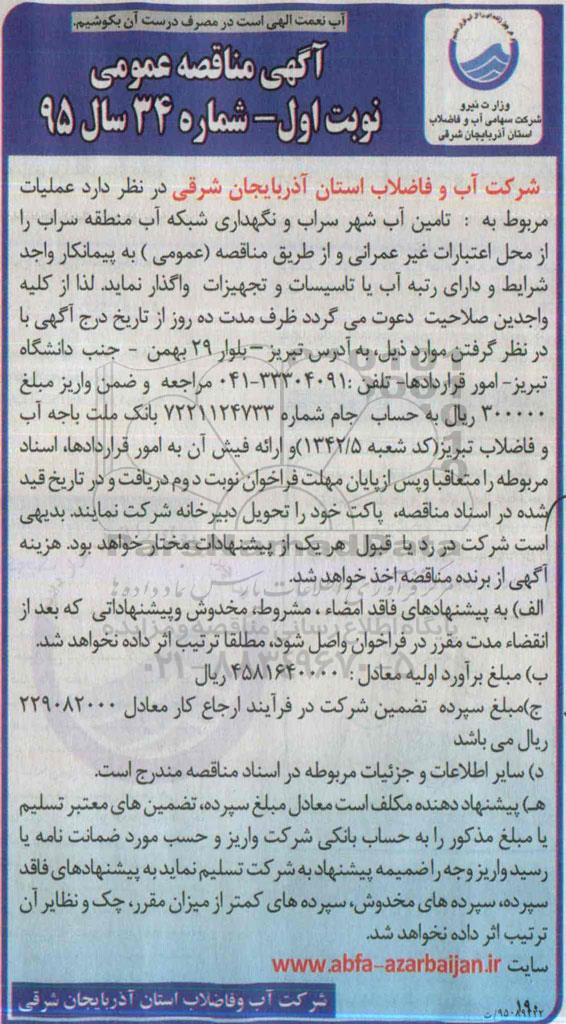 آب نعمت الهی است در مصرف درست آن بکوشیم.
آگهی مناقصه عمومی
نوبت اول- شماره ۳۴ سال ۹۵
وزارت نیرو
شرکت سهامی آب و فاضلاب
استان آذربایجان شرقی
شرکت آب و فاضلاب استان آذربایجان شرقی در نظر دارد عملیات
مربوط به : تامین آب شهر سراب و نگهداری شبکه آب منطقه سراب را
از محل اعتبارات غیر عمرانی و از طریق مناقصه (عمومی ) به پیمانکار واجد
شرایط و دارای رتبه آب یا تاسیسات و تجهیزات واگذار نماید. لذا از کلیه
واجدین صلاحیت دعوت می گردد ظرف مدت ده روز از تاریخ درج آگهی با
در نظر گرفتن موارد ذیل، به آدرس تبریز – بلوار ۲۹ بهمن - جنب دانشگاه
تبریز- امور قراردادها- تلفن :۳۳۳۰۴۰۹۱-۰۴۱ مراجعه و ضمن واریز مبلغ
۳۰۰۰۰۰ ریال به حساب جام شماره ۷۲۲۱۱۲۴۷۳۳ بانک ملت باجه آب
و فاضلاب تبریز(کد شعبه ۱۳۴۲/۵)و ارائه فیش آن به امور قراردادها، اسناد
مربوطه را متعاقبا و پس از پایان مهلت فراخوان نوبت دوم دریافت و در تاریخ قید
شده در اسناد مناقصه، پاکت خود را تحویل دبیرخانه شرکت نمایند. بدیهی
است شرکت در رد یا قبول هر یک از پیشنهادات مختار خواهد بود. هزینه
آگهی از برنده مناقصه اخذ خواهد شد.
الف) به پیشنهادهای فاقد امضاء ، مشروط، مخدوش وپیشنهاداتی که بعد از
انقضاء مدت مقرر در فراخوان واصل شود، مطلقا ترتیب اثر داده نخواهد شد.
ب) مبلغ برآورد اولیه معادل : ۴۵۸۱۶۴۰۰۰۰ ریال
ج)مبلغ سپرده تضمین شرکت در فرآیند ارجاع کار معادل ۲۲۹۰۸۲۰۰۰
ریال می باشد
د) سایر اطلاعات و جزئیات مربوطه در اسناد مناقصه مندرج است.
هـ) پیشنهاد دهنده مکلف است معادل مبلغ سپرده، تضمین های معتبر تسلیم
یا مبلغ مذکور را به حساب بانکی شرکت واریز و حسب مورد ضمانت نامه یا
رسید واریز وجه را ضمیمه پیشنهاد به شرکت تسلیم نماید به پیشنهادهای فاقد
سپرده، سپرده های مخدوش، سپرده های کمتر از میزان مقرر، چک و نظایر آن
ترتیب اثر داده نخواهد شد.
سایت www.abfa-azarbaijan.ir
شرکت آب وفاضلاب استان آذربایجان شرقی
ParsNamadData
پایگاه اطلاع رسانی مناقصه و مزایده
۰۲۱-۸۸۳۴۹۶۷۰-۵